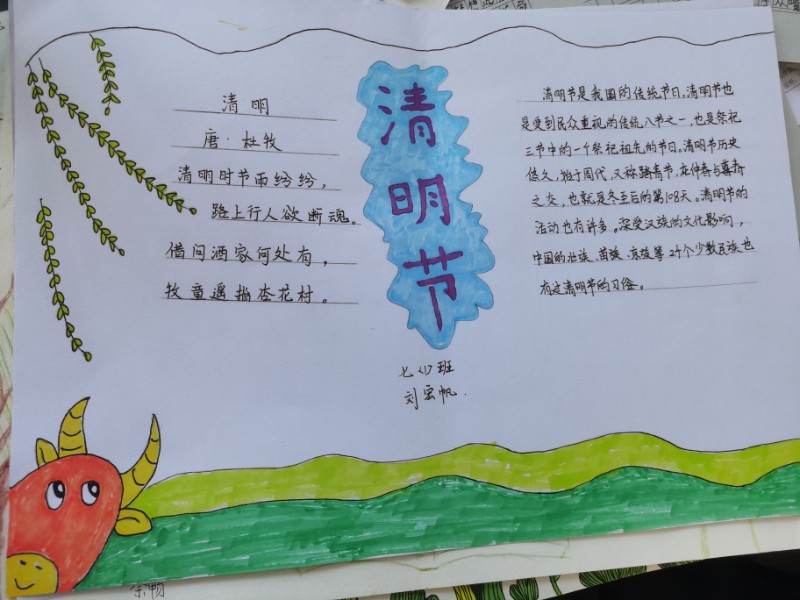 清明
唐·杜牧
清明时节雨纷纷，
路上行人欲断魂。
借问酒家何处有，
牧童遥指杏花村。
清明节
清明节是我国的传统节日，清明节也
是受到民众重视的传统八节之一，也是祭祀
三节中的一个祭祀祖先的节日，清明节历史
悠久，始于周代，又称踏青节，在仲春与暮春
之交，也就是冬至后的第108天。清明节的
活动也有许多。深受汉族的文化影响，
中国的壮族、苗族、等24个少数民族也
有过清明节的习俗。
班
刘宏帆